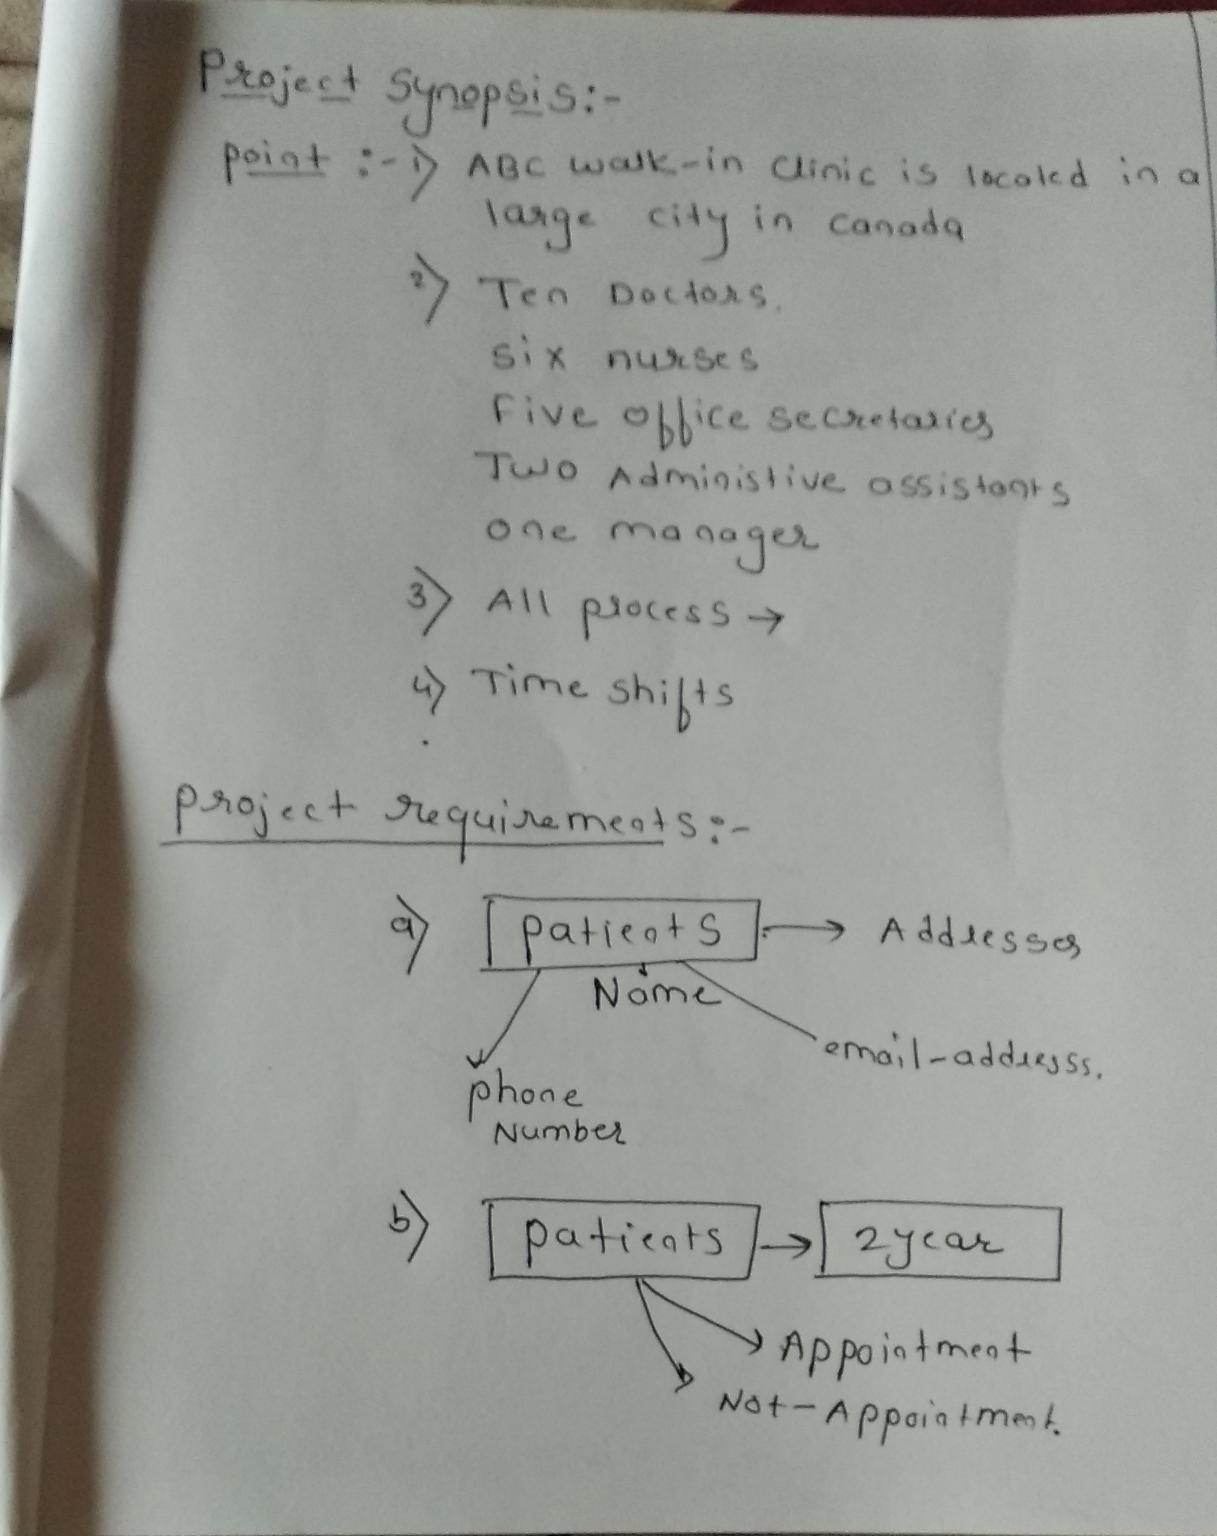 Project Synopsis:-
point :- 1) ABC walk-in clinic is localed in a
large city in canada
2) Ten Doctors.
six nurses
Five office secretaries
Two Administive assistants
one manager
3) All process →
4) Time shifts
project requirements:-
a) patients → Addresses
Name
email-addresss.
phone
Number
b) patients → 2year
Appointment
Not-Appointment.